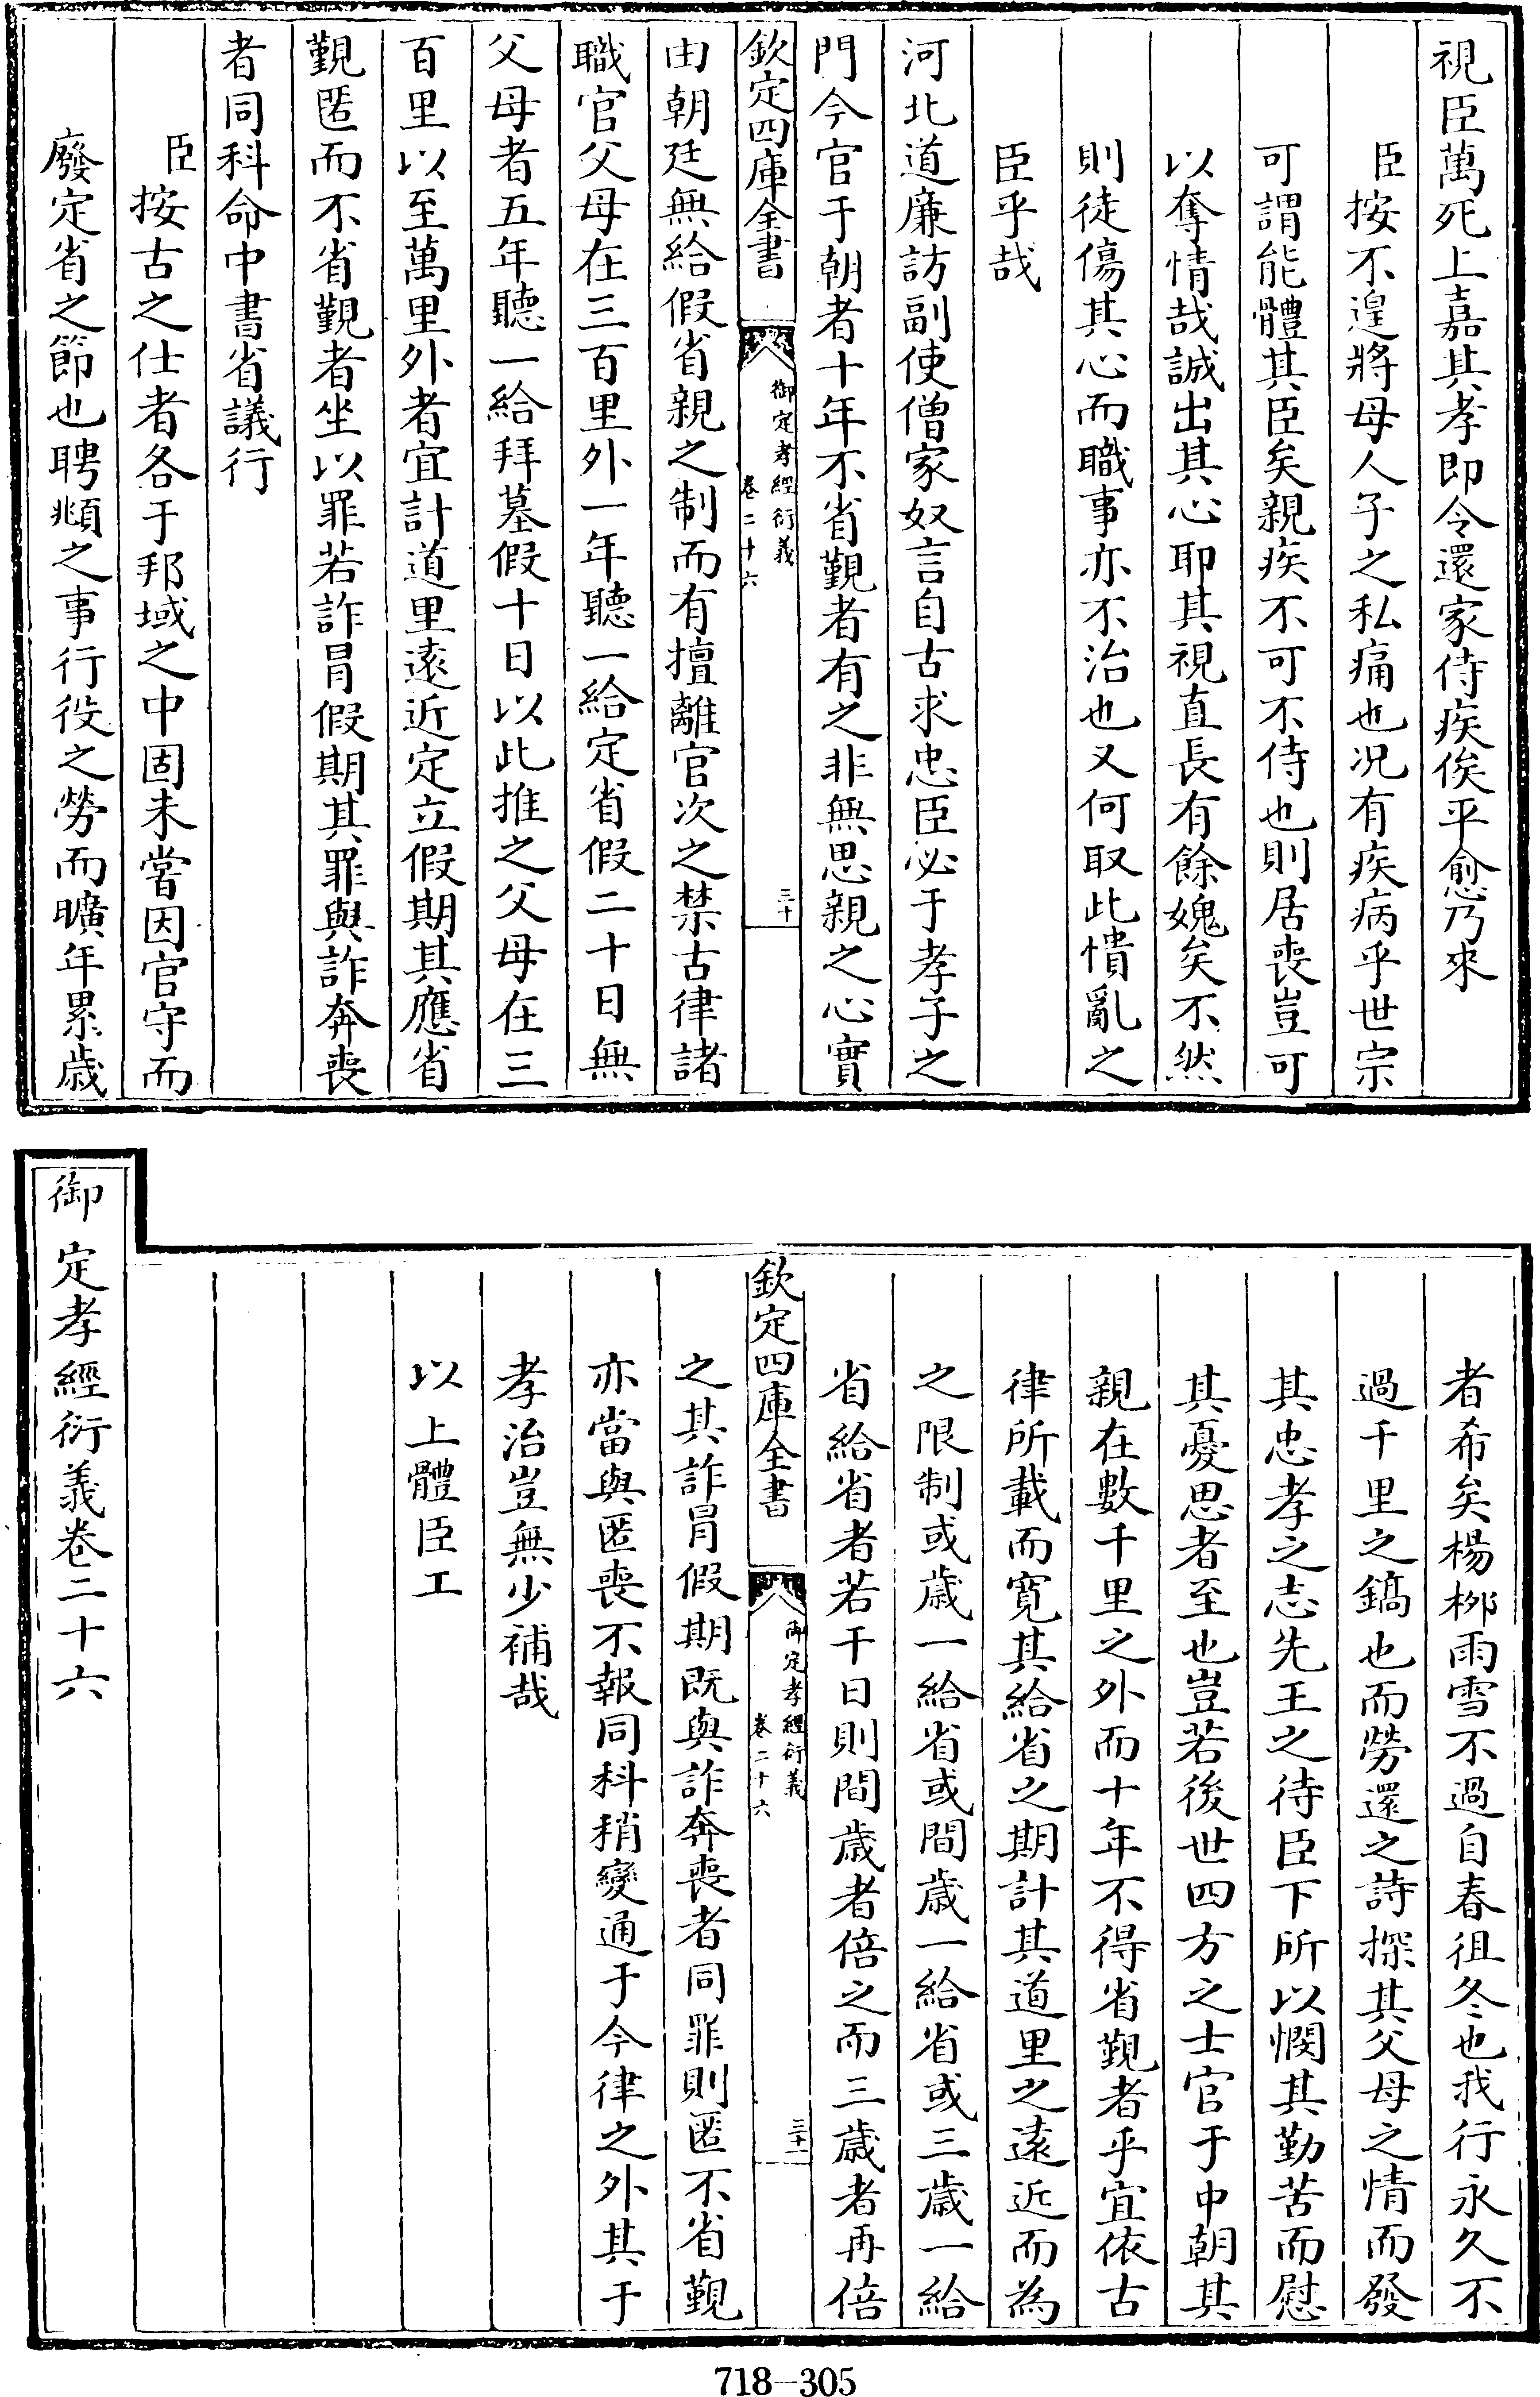 視臣萬死上嘉其孝即令還家侍疾俟平愈乃來
臣按不遑將母人子之私痛也況有疾病乎世宗
可謂能體其臣矣親疾不可不侍也則居喪豈可
以奪情哉誠出其心耶其視直長有餘媿矣不然
則徒傷其心而職事亦不治也又何取此憒亂之
臣乎哉
河北道廉訪副使僧家奴言自古求忠臣必于孝子之
門今官于朝者十年不省覲者有之非無思親之心實
欽定四庫全書
御定孝經衍義
卷二十六
三十
由朝廷無給假省親之制而有擅離官次之禁古律諸
職官父母在三百里外一年聽一給定省假二十日無
父母者五年聽一給拜墓假十日以此推之父母在三
百里以至萬里外者宜計道里遠近定立假期其應省
覲匿而不省覲者坐以罪若詐冐假期其罪與詐奔喪
者同科命中書省議行
臣按古之仕者各于邦域之中固未嘗因官守而
廢定省之節也聘頫之事行役之勞而曠年累歲
者希矣楊柳雨雪不過自春徂冬也我行永久不
過千里之鎬也而勞還之詩探其父母之情而發
其忠孝之志先王之待臣下所以憫其勤苦而慰
其憂思者至也豈若後世四方之士官于中朝其
親在數千里之外而十年不得省覲者乎宜依古
律所載而寛其給省之期計其道里之遠近而為
之限制或歲一給省或間歲一給省或三歲一給
省給省者若干日則間歲者倍之而三歲者再倍
欽定四庫全書
御定孝經衍義
卷二十六
三十一
之其詐冐假期既與詐奔喪者同罪則匿不省覲
亦當與匿喪不報同科稍變通于今律之外其于
孝治豈無少補哉
以上體臣工
御定孝經衍義卷二十六
718-305